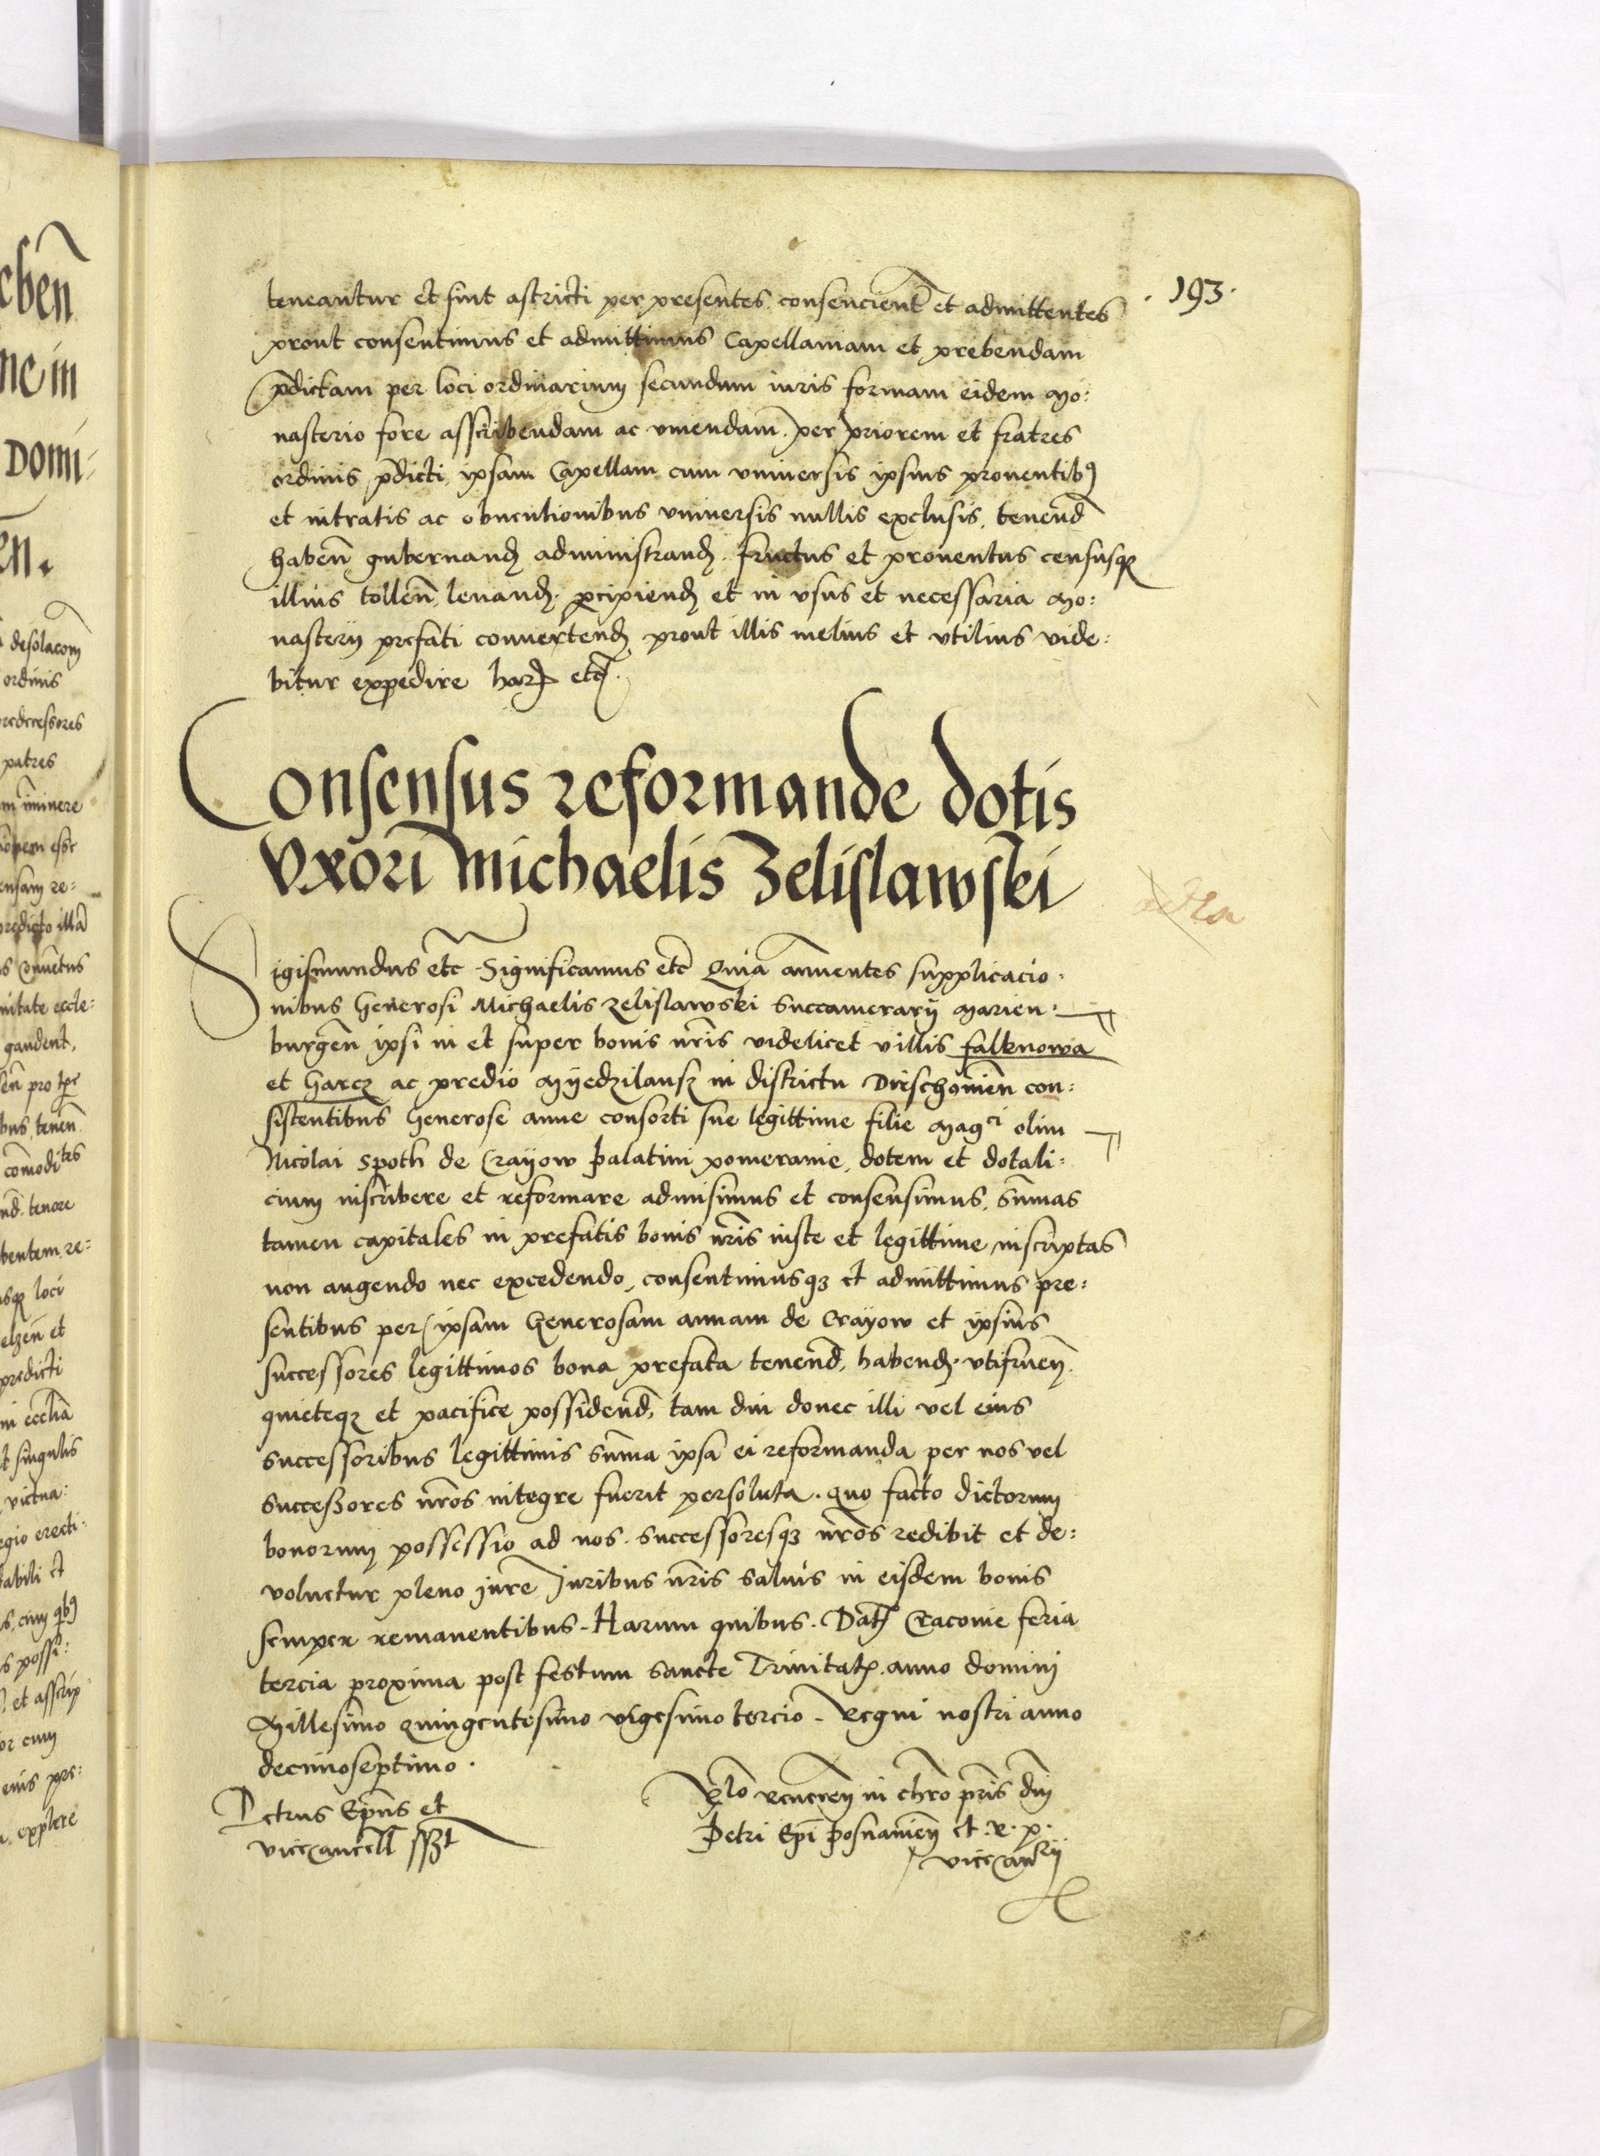 193
teneantur et sint astricti per presentes consencient̄ et admittentes
prout consentimus et admittimus Capellaniam et prebendam
p̄dictam per loci ordinarium secundum iuris formam eidem Mo:
nasterio fore asscribendam ac vniendam. per priorem et fratres
ordinis p̄dicti ipsam Capellam cum vniuersis ipsius prouentibꝯ
et intratis ac obuentionibus vniuersis nullis exclusis. tenend̄
haben̄ gubernand̄ administrand̄. fructus et prouentus censusqꝫ
illius tollen̄ leuand̄. p̱cipiend̄ et in vsus et necessaria Mo:
nasterij prefati conuertend̄ prout illis melius et vtilius vide:
bitur expedire harꝝ etc̄.
Consensus reformande dotis
Vxori Michaelis Zelislawski
Sigismundus etc̄ Significamus etc̄ Quia annuentes supplicacio:
nibus Generosi Michaelis Zelislawski Succamerarij Marien:
burgen̄ ipsi in et super bonis nr̄is videlicet villis falknowa
et Garcz ac predio Myedzilansz in districtu Dirschouien̄ con:
sistentibus Generose anne consorti sue legittime filie Mag^ci olim
Nicolai Spoth de Crayow Palatini pomeranie, dotem et dotali:
cium inscribere et reformare admisimus et consensimus, sum̄as
tamen capitales in prefatis bonis nr̄is iuste et legittime inscriptas
non augendo nec excedendo, consentimusqꝫ et admittimus pre:
sentibus per ipsam Generosam annam de Crayow et ipsius
successores legittimos bona prefata tenend̄, habend̄. vtifruen̄.
quieteqꝫ et pacifice possidend̄, tam diu donec illi vel eius
successoribus legittimis sum̄a ipsa ei reformanda per nos vel
successores nr̄os integre fuerit persoluta. quo facto dictorum
bonorum possessio ad nos. successoresqꝫ nr̄os redibit et de:
voluetur pleno jure Juribus nr̄is saluis in eisdem bonis
semper remanentibus. Harum quibus. Dat̄ Cracouie feria
tercia proxima post festum Sancte Trinitatꝭ. anno domini
Millesimo quingentesimo vigesimo tercio. Regni nostri anno
decimoseptimo.
Petrus Ep̄us et
viceCancell̄ sszt
Rlo Reueren̄ in chr̄o pr̄is dn̄i
Petri Ep̄i posnanien̄ et. R. P.
viceCan^rij